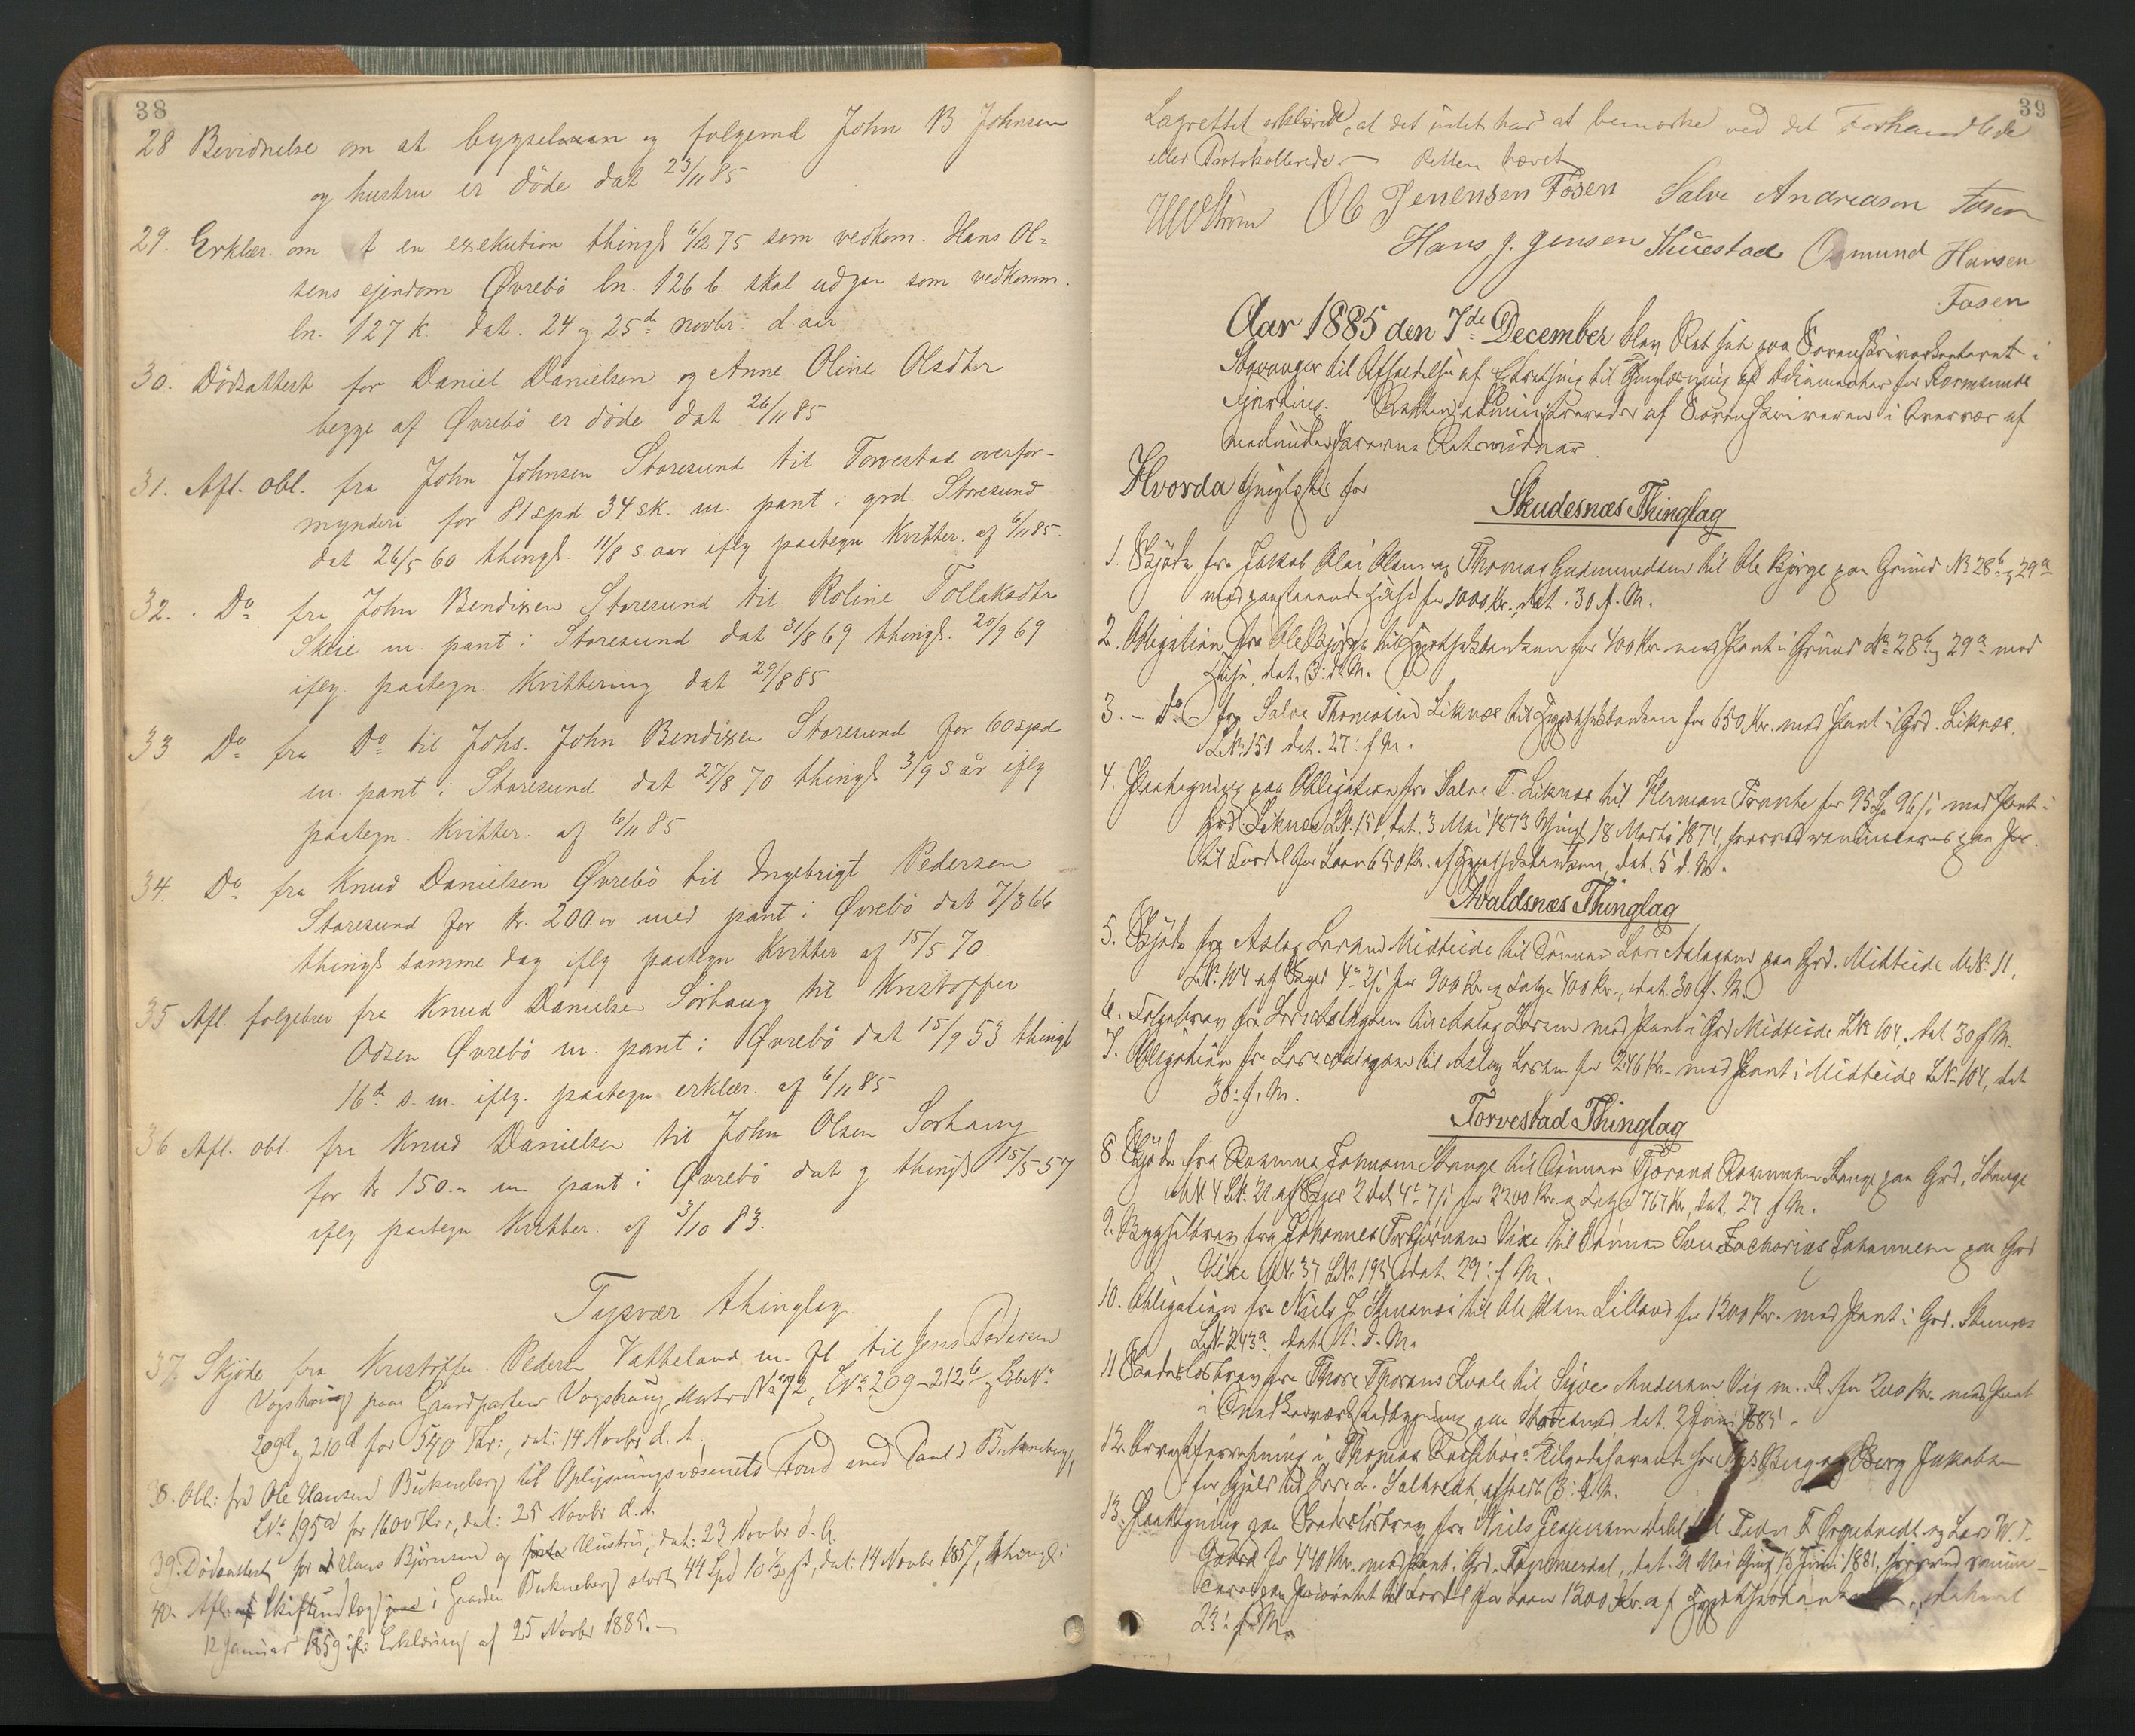 38
28 Bevidnelse om at bygselman og folgemd John B Johnsen
og hustru er döde dat 23/11 85
29. Erklær. om t en exekution thingl 6/12 75 som vedkom. Hans Ol=
sens ejendom Øvrebö ln. 126 b. skal udgaa som vedkomm.
ln. 127 k. dat. 24 og 25de novbr. d. aar
30. Dödsattest for Daniel Danielsen og Anne Oline Olsdtr
begge af Øvrebö er döde dat 26/11 85
31. Afl. obl. fra John Johnsen Storesund til Torvestad overfor-
mynderi for 81 spd 34 sk. m. pant i grd. Storesund
dat 26/5 60 thingl. 11/8 s. aar iflg paategn kvitter. af 6/11 85.
32. Do fra John Bendixen Storesund til Roline Tollaksdtr
Skeie m. pant i Storesund dat 31/8 69 thingl. 20/9 69
iflg. paategn. Kvittering dat 29/8 85
33 Do fra Do til Johs. John Bendixen Storesund for 60 spd
m. pant i Storesund dat 27/8 70 thingl 3/9 s år iflg
paategn. kvitter. af 6/11 85
34. Do fra Knud Danielsen Øvrebö til Ingebrigt Pedersen
Storesund for kr. 200.00 med pant i Øvrebö dat 7/3 66
thingl samme dag iflg paategn kvitter af 15/5 70.
35 Afl. folgebrev fra Knud Danielsen Sörhaug til Kristoffer
Odsen Øvrebö m. pant i Øvrebö dat 15/9 53 thingl
16de s. m. iflg. paategn erklær. af 6/11 85
36 Afl. obl. fra Knud Danielsen til John Olsen Sorhaug
for kr 150.- m pant i Øvrebö dat og thingl 15/5 57
iflg paategn kvitter. af 3/10 83.
Tysvær thinglag
37. Skjöde fra Kristoffer Pedersen Vatteland m. fl. til Jens Pedersen
Vogshaug paa Gaardparten Vogshaug, Matr No 72, LNo 209-212b og LöbeNo
209d og 210d for 540 Kr:, dat: 14 Novbr d. A.
38. Obl: fra Ole Hansen Bukneberg til Oplysningsvæsenets Fond med Pant i Bukneberg,
LNo 195a for 1600 Kr., dat: 25 Novbr d. A.
39. Dödsattest for Hans Björnsen og Hustru, dat: 23 Novbr d. A.
40. Afl: Skiftesudlæg i Gaarden Bukneberg stort 44 Spd 10 1/2 ß, dat: 14 Novbr 1857, thingl:
12 Januar 1859 ifl: Erklæring af 25 Novbr 1885.-
39
Lagrettet erklærede, at det intet har at bemærke ved det Forhandlede
eller Protokollerede.- Retten hævet
Ström Ob Jenensen Fosen Salve Andreasen Fosen
Hans J. Jensen Thuestad Osmund Hansen
Fosen
Aar 1885 den 7de December blev Ret sat paa Sorenskriverkontoret i
Stavanger til Afholdelse af Extrathing til Thinglæsning af Dokumenter for Karmsunds
Retten administreredes af Sorenskriveren i Overvær af
medunderskrevne Retsvidner.
Hvorda thinglæstes for
Skudesnæs Thinglag
1. Skjöde fra Jakob Olai Olsen og Thomas Gudmundsen til Ole Bjørge paa Grund No 28b og 29a
med paastaaende Huse for 1000 Kr., dat. 30 f. M.
2. Obligation fra Ole Bjørge til Hypothekbanken for 400 Kr. med Pant i Grund No 28b og 29a med
Huse, dat. 3: d. M.
3. - Do - fra Salve Thomasen Liknæs til Hypothekbanken for 650 Kr. med Pant i Grd. Liknæs,
LNo 151 dat. 27: f M.
4. Paategning paa Obligation fra Salve T. Liknæs til Herman Frante for 95 Spd 96 ß med Pant i
Grd Liknæs LN. 151, dat. 3 Mai 1873 thingl 18 Marts 1874, hvorved
til Fordel for Laan 650 Kr. af Hypothekbanken, dat. 5 d. M.
Avaldsnæs Thinglag
5. Skjöde fra Aslag Larsen Midteide til Sönnen Lars Aslagsen paa Grd. Midteide MNo 11,
LNo 104 af Skyld for 900 Kr. og 400 Kr., dat. 30 f. M.
6. Folgebrev fra Lars Aslagsen til Aslag Larsen med Pant i Grd Midteide LNo 104, dat 30 f M.
7. Obligation fra Lars Aslagsen til Aslag Larsen for 246 Kr. med Pant i Midteide LNo 104, dat
30: f. M.
Torvestad Thinglag
8. Skjöde fra Rasmus Johnsen Stange til Sönnen Tjærand Rasmussen Stange paa Grd. Stange
MN 4 LN. 21 af Skyld 2 dal for 2200 Kr. og 767 Kr, dat. 27 f M.
9. Bygselbrev fra Johannes Torbjörnsen Vike til Sönnen Sven Zacharias Johannesen paa Grd
Vike MN 37 LNo 195 dat. 29: f M.
10. Obligation fra Niels J. til Ole Olsen Lilland for 1200 Kr. med Pant i Grd.
LN 243a, dat 1: d. M.
11 Skadeslosbrev fra Thore Thorsen Kvale til Sigve Andersen Vig m. fl. for 200 Kr. med Pant
i paa Storesund dat. 2 Juni 1885.
12. Arrestforretning i Thomas Tilgodehavende hos Berg Jakobsen
for Gjæld til L. Salvesen, afholdt 3: d. M.
13. Paategning paa Skadeslosbrev fra Niels Dahl til T. og Lars W. T.
Gaard for 440 Kr. med Pant i Grd. Tommerdal, dat. 21 Mai thingl 13 Juni 1881, hvorved
til Fordel for Laan 1200 Kr. af
23: f. M.